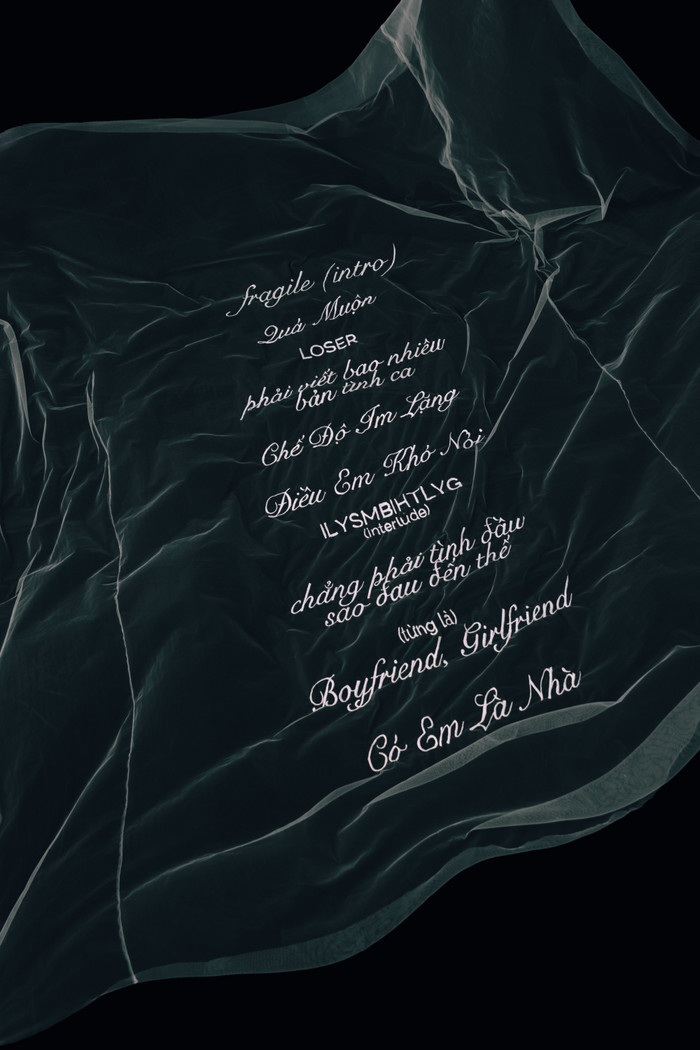 fragile (intro)
Quá Muộn
LOSER
phải viết bao nhiêu
bản tình ca
Chế Độ Im Lặng
Điều Em Khó Nói
ILYSMBIHTLYG
(interlude)
chẳng phải tình đầu
sao đau đến thế
(từng là)
Boyfriend, Girlfriend
Có Em Là Nhà